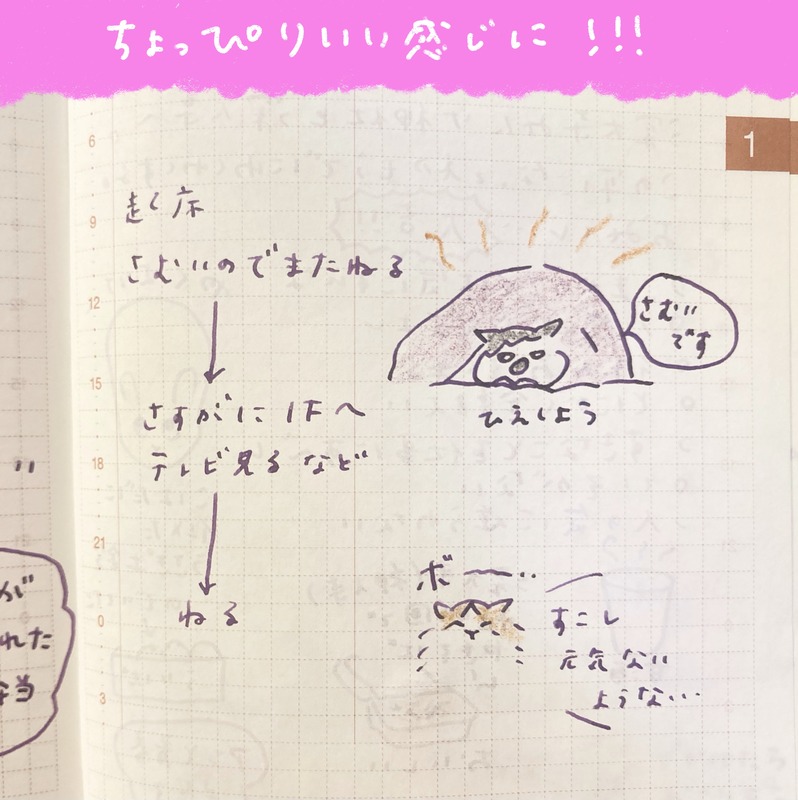 ちょっぴりいい感じに!!!
1
6
9
12
15
18
21
0
3
起く床
さむいのでまたねる
さすがに下へ
テレビ見るなど
ねる
さむい
です
ひえしょう
ボー‥
すこし
元気ない
ような…
が
れた
弁当